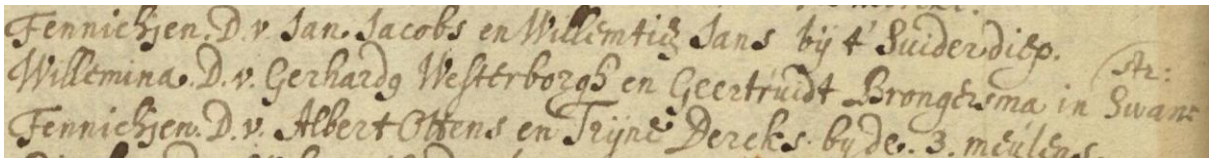 Fennichjen. D. v. Jan. Jacobs en Willemtie Jans bij t' Suiderdiep.
Willemina. D. v. Gerhardg Westerborgh en Geertruidt Brongersma in Swan= str:
Fennichjen. D. v. Albert Ottens en Trijne Dercks. by de. 3. meulens